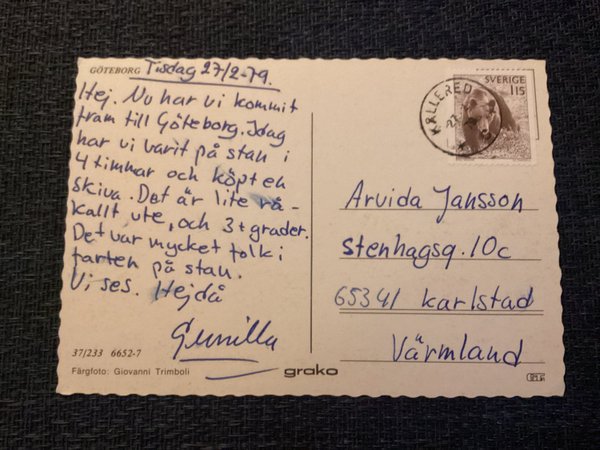 GÖTEBORG Tisdag 27/2-79.
Hej. Nu har vi kommit
fram till Göteborg. Idag
har vi varit på stan i
4 timmar och köpt en
skiva. Det är lite rå-
kallt ute, och 3+ grader.
Det var mycket folk i
farten på stan.
Vi ses. Hejdå
Gunilla
37/233 6652-7
Färgfoto: Giovanni Trimboli
grako
KÅLLERED
SVERIGE
115
Arvida Jansson
Stenhagsg. 10c
65341 Karlstad
Värmland